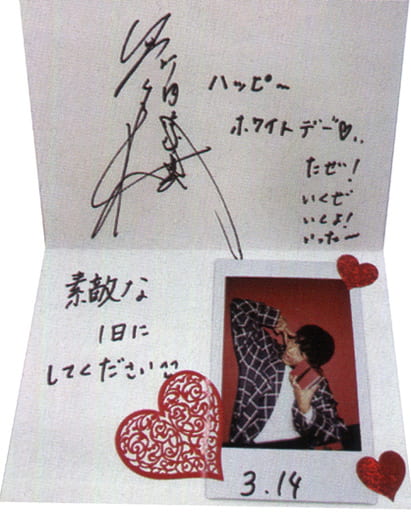 ハッピ〜
ホワイトデー♡..
だぜ!
いくぜ
いくよ!
いった〜
素敵な
1日に
してください
3.14